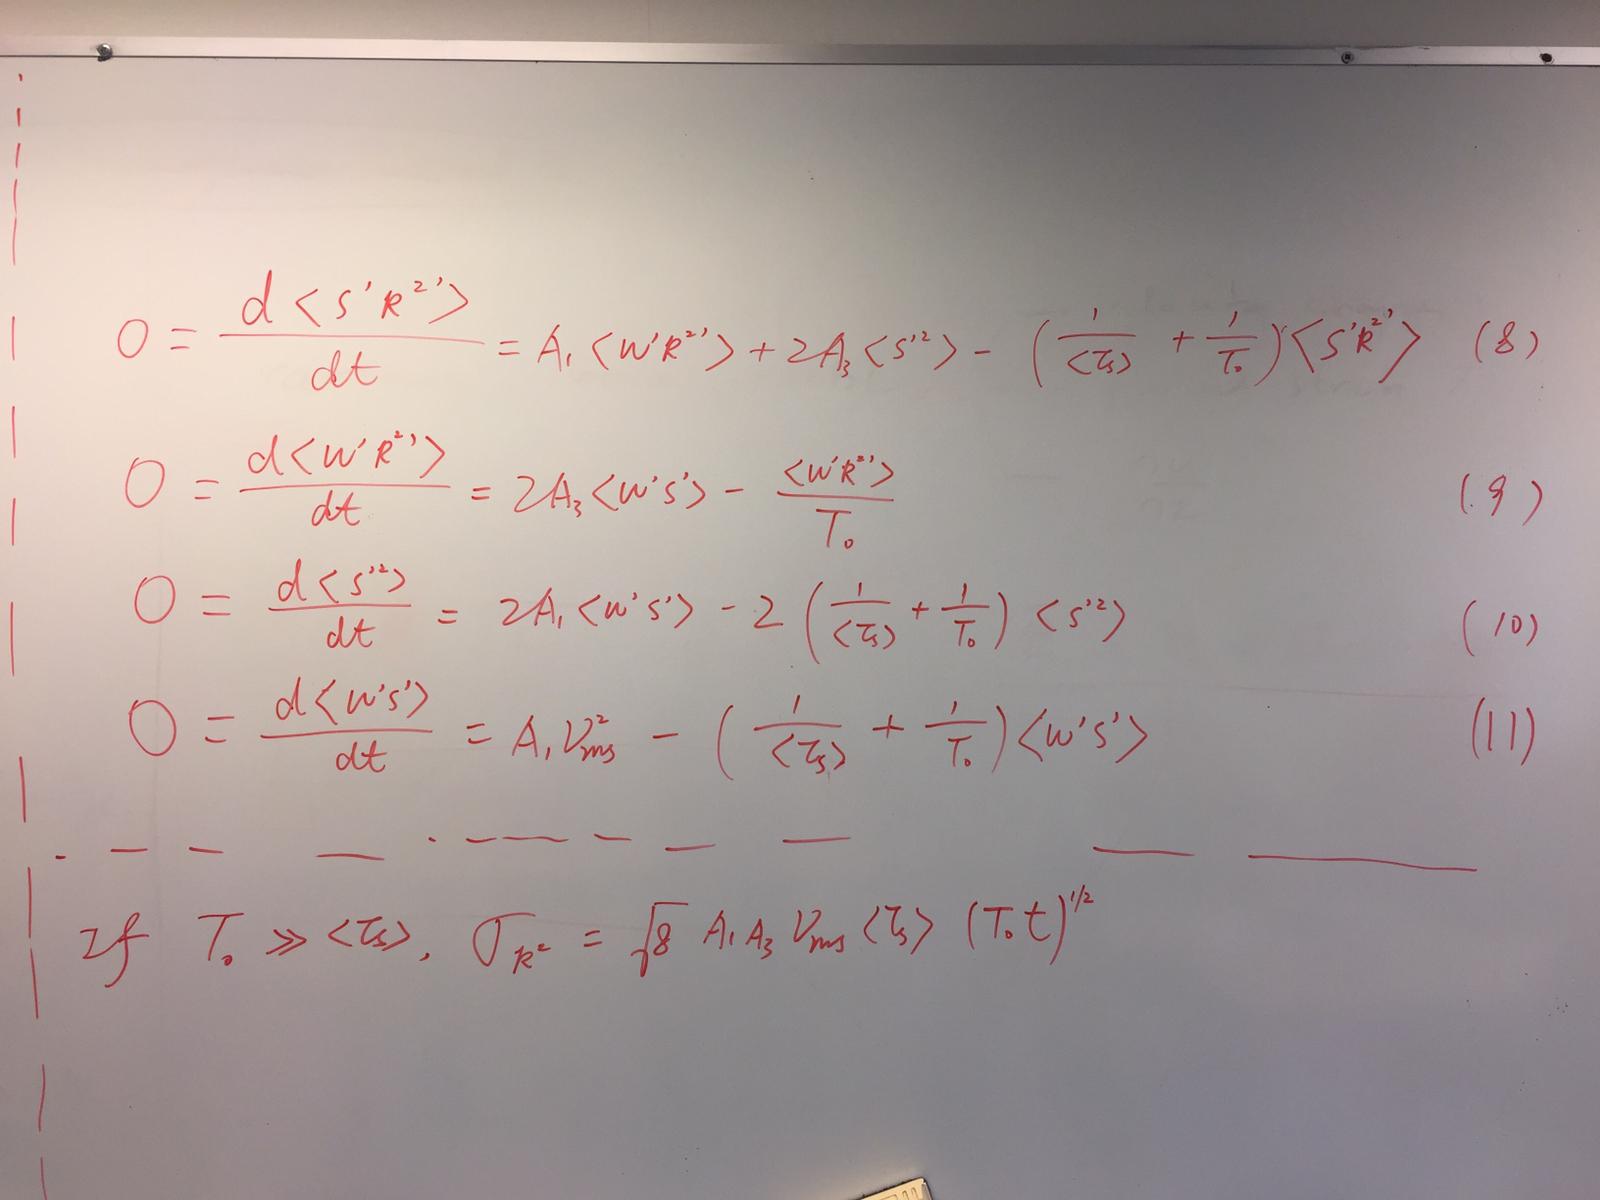 0 = d<s'R²'>/dt = A₁<w'R²'> + 2A₃<s'²> - (1/<τₛ> + 1/T₀)<s'R²'> (8)
0 = d<w'R²'>/dt = 2A₃<w's'> - <w'R²'>/T₀ (9)
0 = d<s'²>/dt = 2A₁<w's'> - 2(1/<τₛ> + 1/T₀)<s'²> (10)
0 = d<w's'>/dt = A₁v²ᵣₘₛ - (1/<τₛ> + 1/T₀)<w's'> (11)
If T₀ ≫ <τₛ>, σ_R² = √8 A₁A₃ vᵣₘₛ <τₛ> (T₀t)^1/2